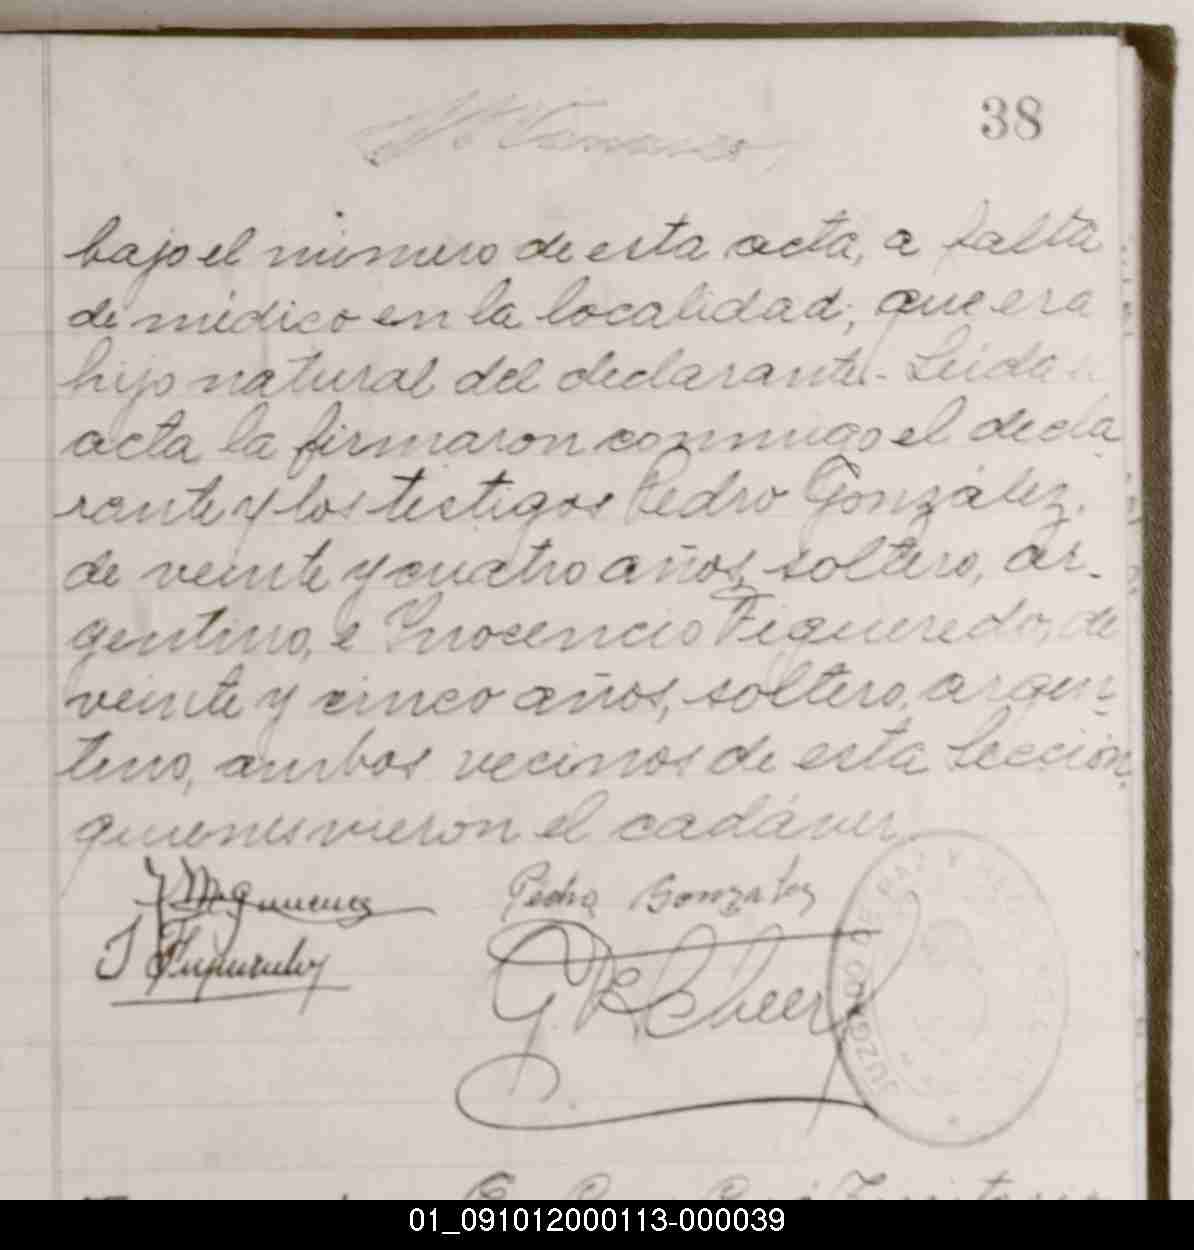 38
bajo el número de esta acta, a falta
de médico en la localidad; que era
hijo natural del declarante. Leida el
acta la firmaron conmigo el decla
rante y los testigos Pedro González,
de veinte y cuatro años, soltero, ar-
gentino, e Inocencio Figueredo, de
veinte y cinco años, soltero, argen-
tino, ambos vecinos de esta Sección,
quienes vieron el cadáver.
Pedro Gonzalez
I Figueredo
JUZGADO DE PAZ Y
01_091012000113-000039